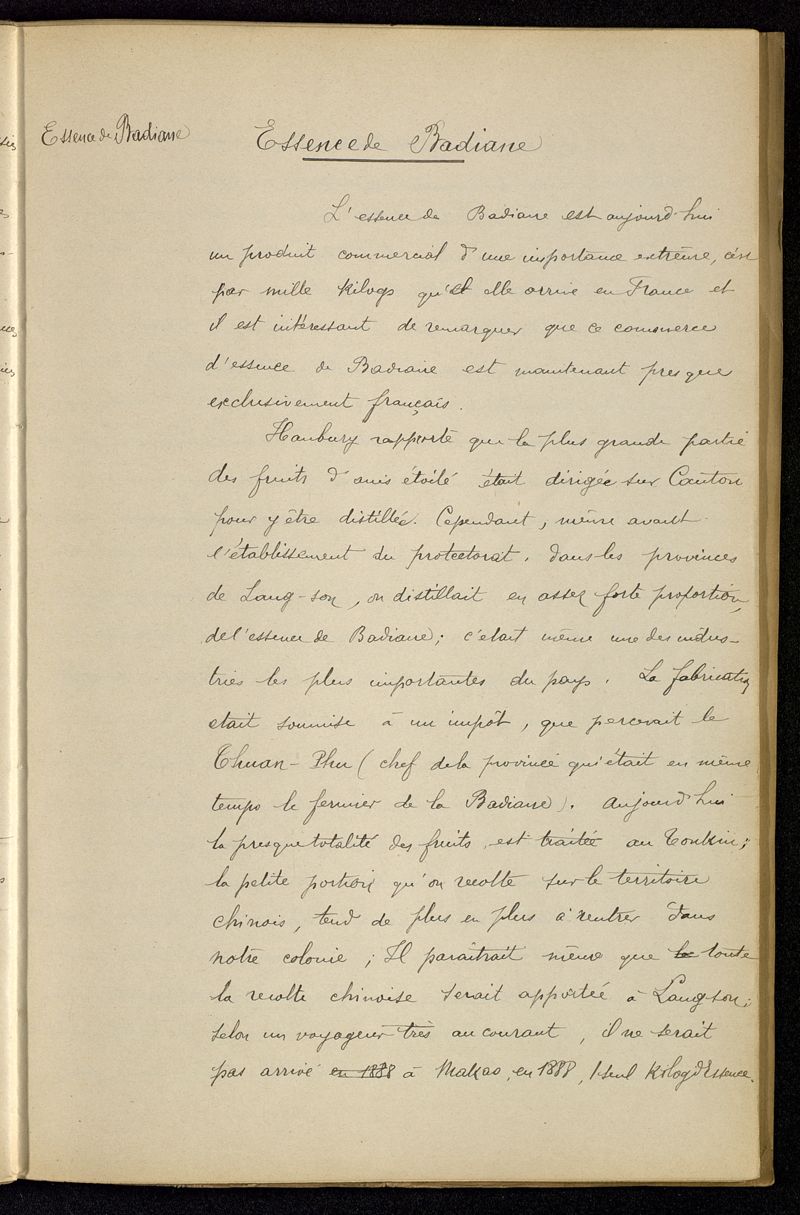 Essence de Badiane
Essence de Badiane
L'essence de Badiane est aujourd'hui
un produit commercial d'une importance extrême, c'est
par mille kilogs qu'elle arrive en France et
il est intéressant de remarquer que ce commerce
d'essence de Badiane est maintenant presque
exclusivement français.
Hanbury rapporte que la plus grande partie
des fruits d'anis étoilé était dirigée sur Canton
pour y être distillée. Cependant, même avant
l'établissement du protectorat, dans les provinces
de Lang-son, on distillait en assez forte proportion,
de l'essence de Badiane; c'était même une des indus-
tries les plus importantes du pays. La fabrication
était soumise à un impôt, que percevait le
Thuan-Phu (chef de la province qui était en même
temps le fermier de la Badiane). Aujourd'hui
la presque totalité des fruits est traitée au Tonkin;
la petite portion qu'on récolte sur le territoire
chinois, tend de plus en plus à rentrer dans
notre colonie; Il paraîtrait même que la toute
la récolte chinoise serait apportée à Langson;
selon un voyageur très au courant, il ne serait
pas arrivé en 1888 à Makao, en 1888, 1 seul kilog d'Essence.